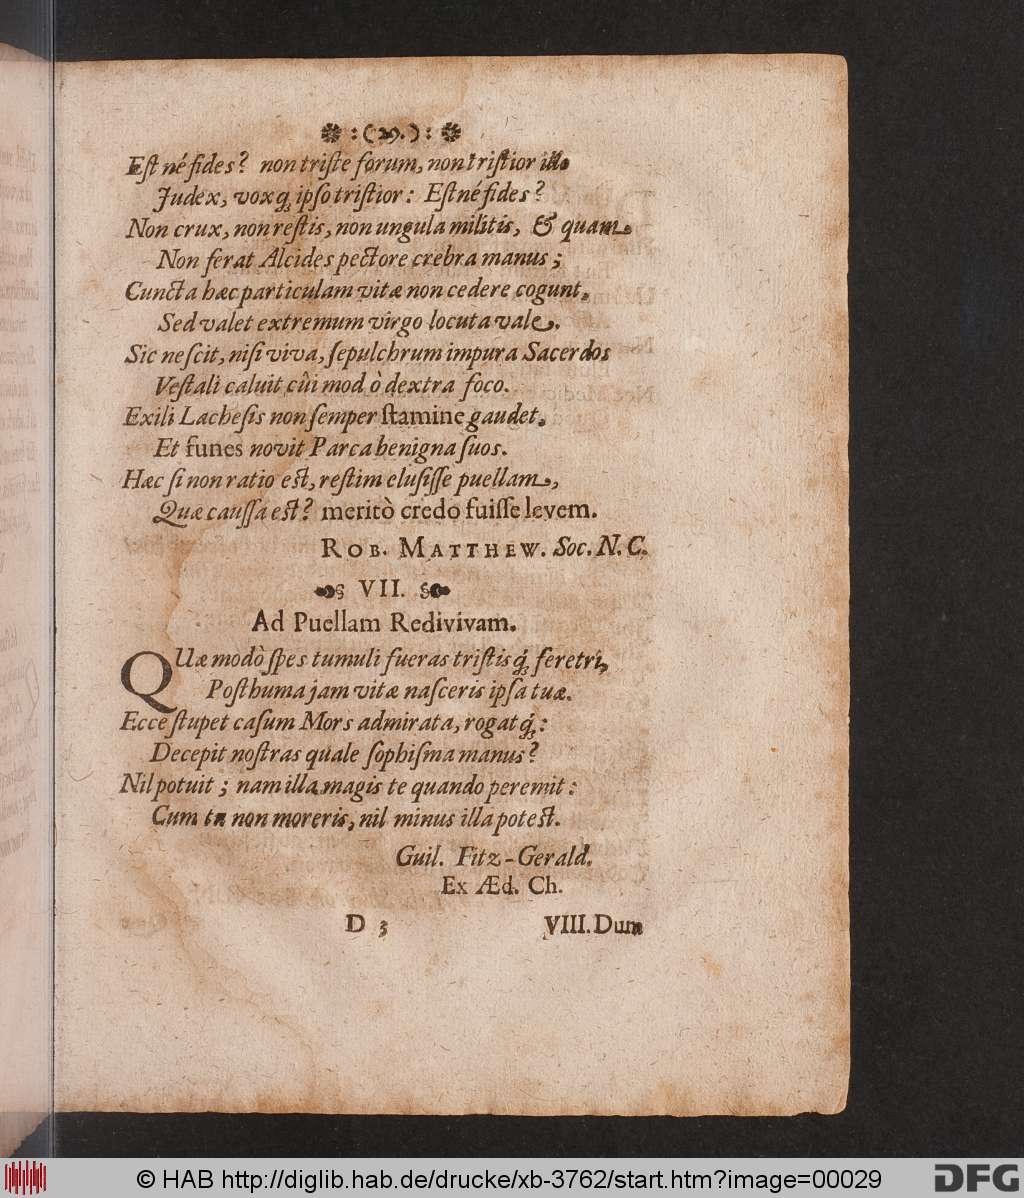 ❋ : (29.) : ❋
Est né fides? non triste forum, non tristior illo
Judex, voxq́; ipso tristior: Est né fides?
Non crux, non restis, non ungula militis, & quam
Non ferat Alcides pectore crebra manus;
Cuncta hæc particulam vitæ non cedere cogunt,
Sed valet extremum virgo locuta vale.
Sic nescit, nisi viva, sepulchrum impura Sacerdos
Vestali caluit cûi mod ò dextra foco.
Exili Lachesis non semper stamine gaudet,
Et funes novit Parca benigna suos.
Hæc si non ratio est, restim elusisse puellam,
Quæ caussa est? meritò credo fuisse levem.
ROB. MATTHEW. Soc. N. C.
VII.
Ad Puellam Redivivam.
QUæ modò spes tumuli fueras tristisq́; feretri,
Posthuma jam vitæ nasceris ipsa tuæ.
Ecce stupet casum Mors admirata, rogatq́;:
Decepit nostras quale sophisma manus?
Nil potuit; nam illa magis te quando peremit:
Cum tu non moreris, nil minus illa potest.
Guil. Fitz-Gerald.
Ex Æd. Ch.
D 3 VIII. Dum
© HAB http://diglib.hab.de/drucke/xb-3762/start.htm?image=00029
DFG